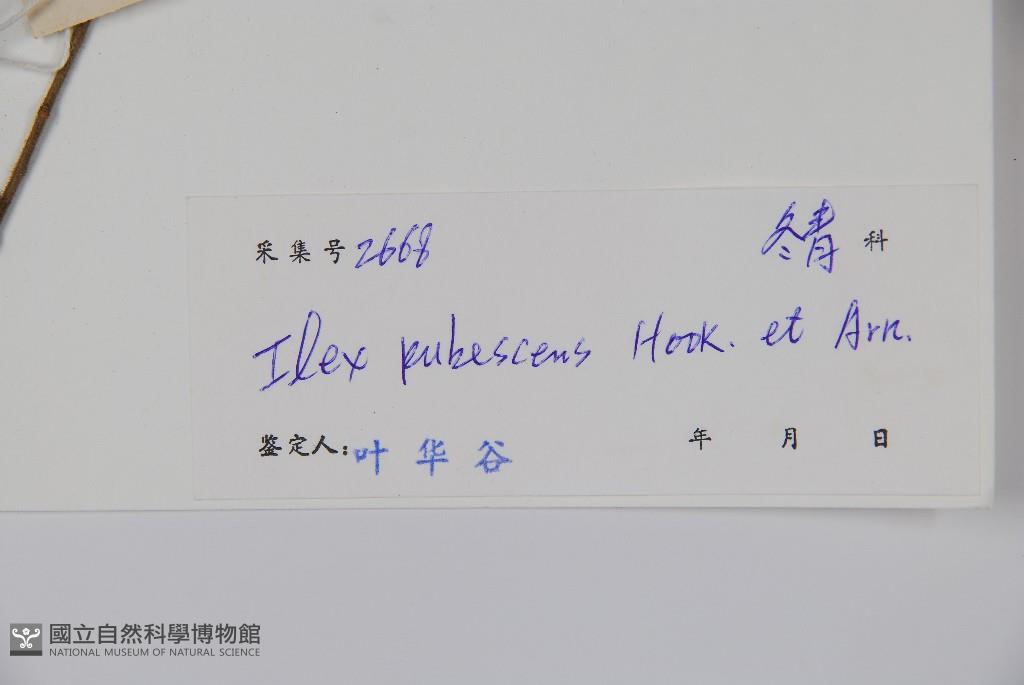 采集号 2668 冬青 科
Ilex pubescens Hook. et Arn.
鉴定人: 叶华谷 年 月 日
國立自然科學博物館
NATIONAL MUSEUM OF NATURAL SCIENCE